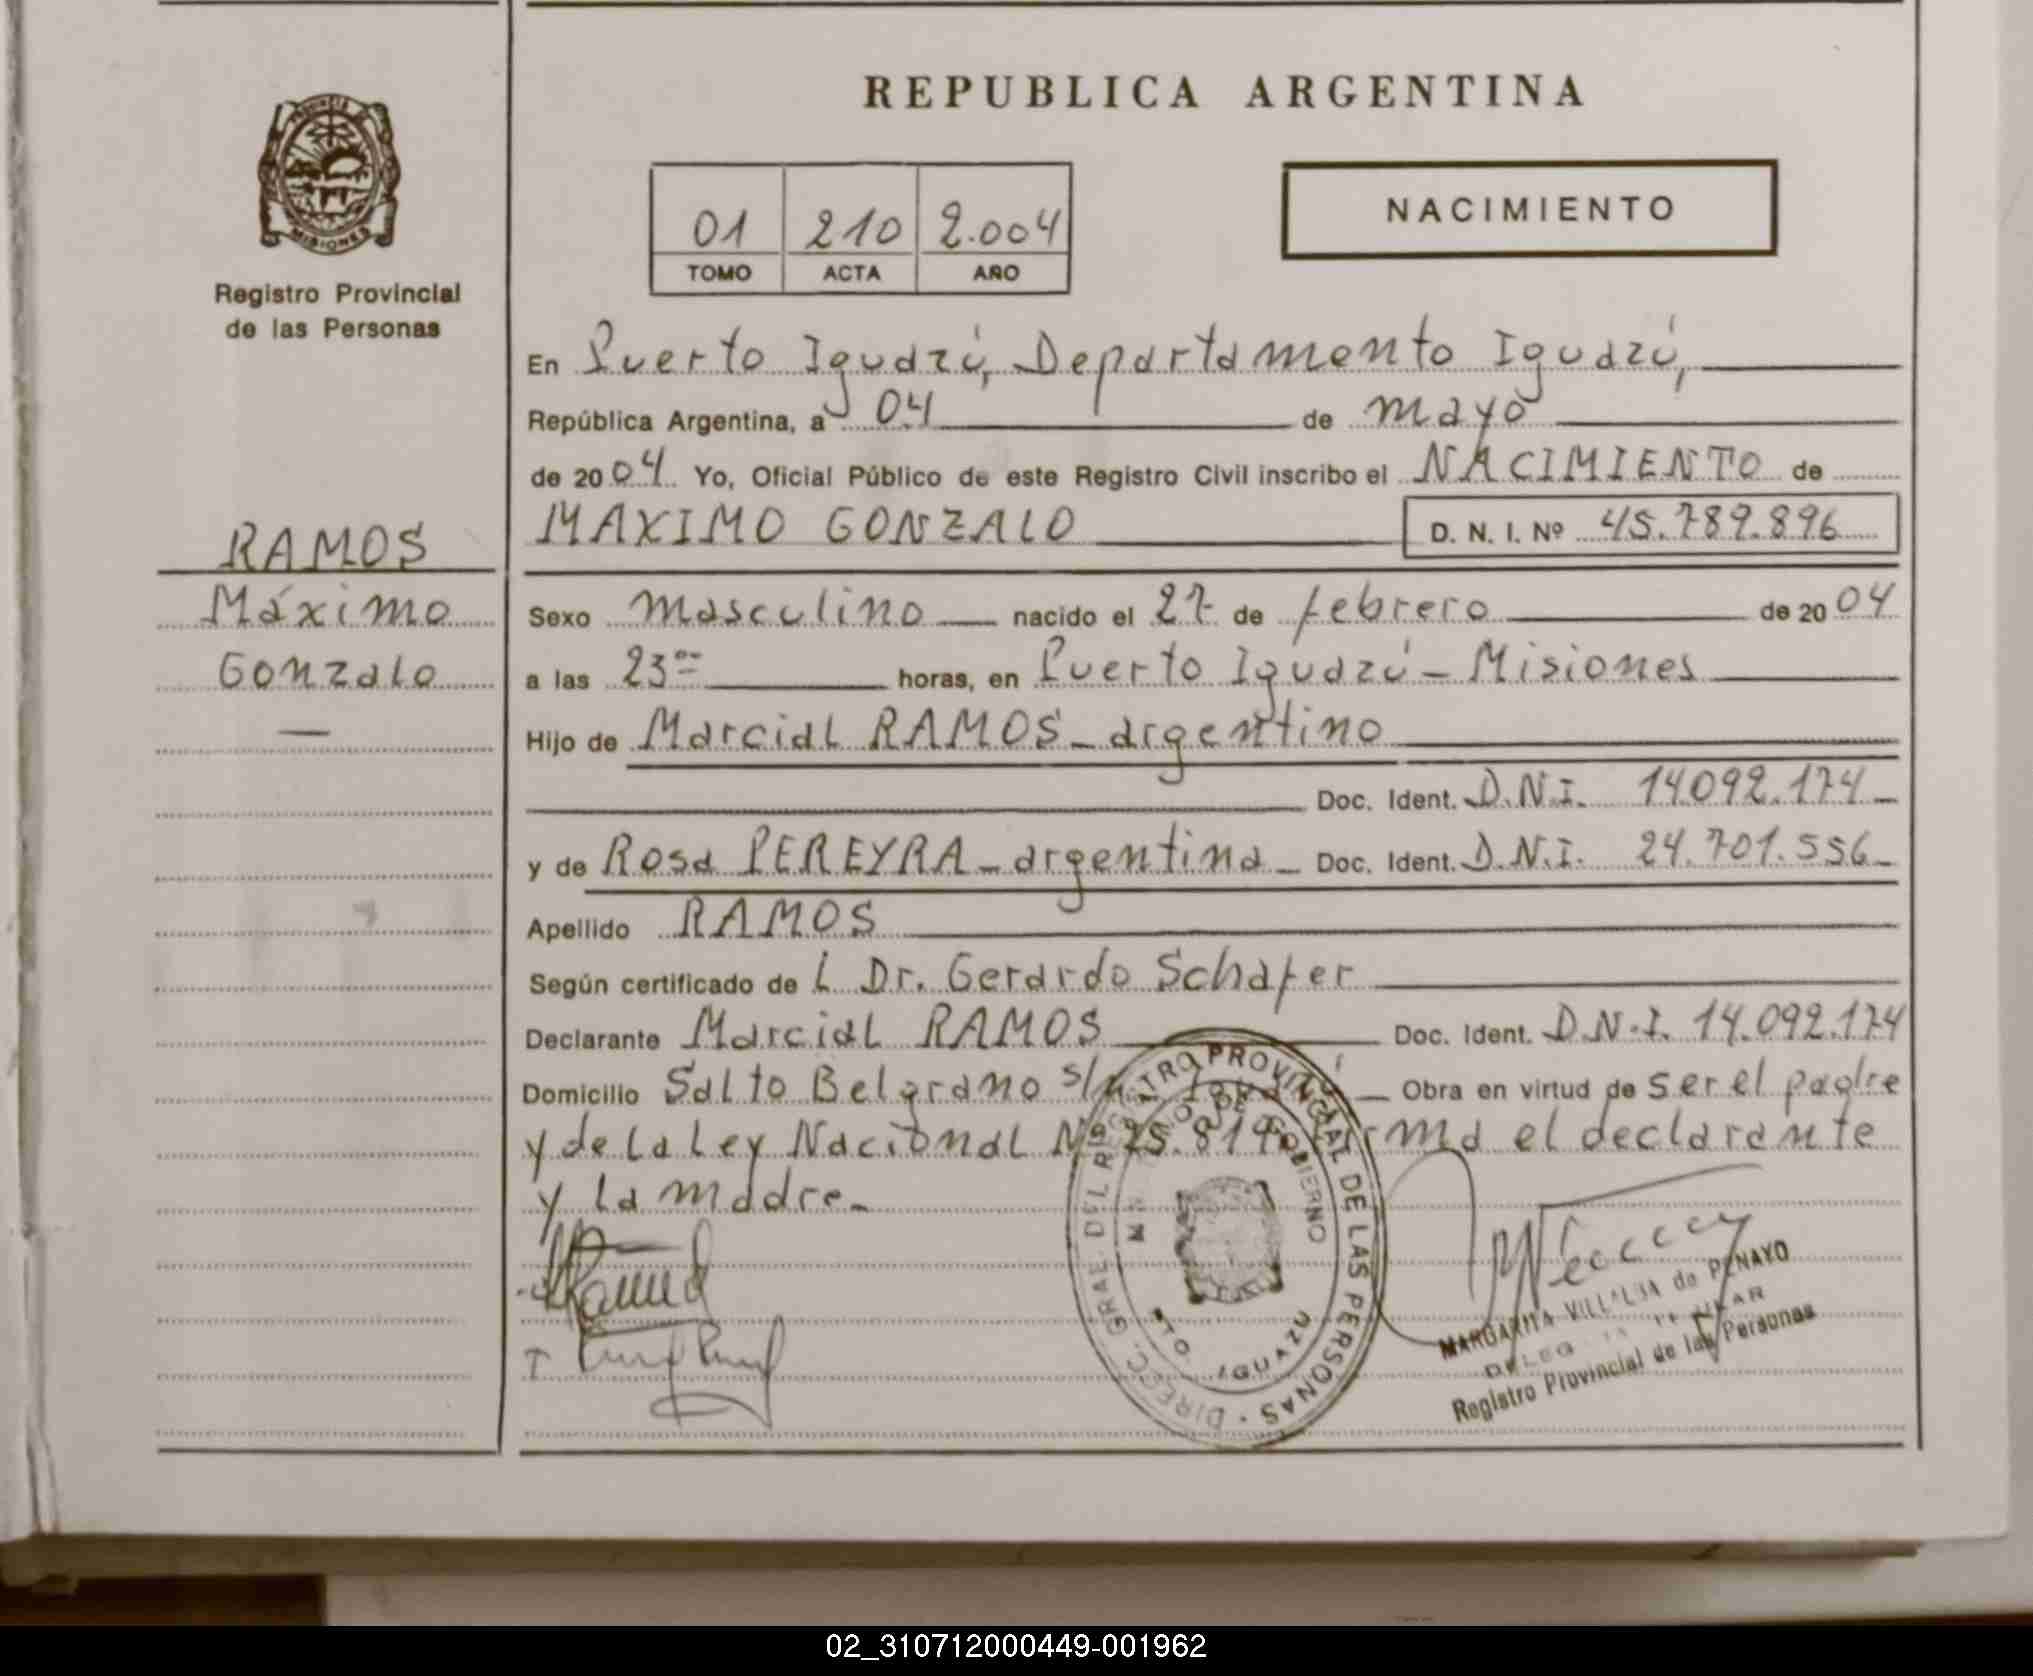 REPUBLICA ARGENTINA
PROVINCIA
MISIONES
Registro Provincial
de las Personas
NACIMIENTO
01 210 2.004
TOMO ACTA AÑO
En Puerto Iguazú, Departamento Iguazú,
República Argentina, a 04 de mayo
de 2004 Yo, Oficial Público de este Registro Civil inscribo el NACIMIENTO de
MAXIMO GONZALO D. N. I. Nº 45.789.896
RAMOS
Máximo
Gonzalo
—
Sexo masculino nacido el 27 de febrero de 2004
a las 23 horas, en Puerto Iguazú - Misiones
Hijo de Marcial RAMOS - argentino
Doc. Ident. D.N.I. 14.092.174
y de Rosa PEREYRA - argentina - Doc. Ident. D.N.I. 24.701.556
Apellido RAMOS
Según certificado de L Dr. Gerardo Schafer
Declarante Marcial RAMOS Doc. Ident. D.N.I. 14.092.174
Domicilio Salto Belgrano s/n Obra en virtud de ser el padre
y de la Ley Nacional Nº 25.819 firma el declarante
y la madre.
DIRECC. GRAL. DEL REGISTRO PROVINCIAL DE LAS PERSONAS
MINISTERIO DE GOBIERNO
IGUAZU
MARGARITA VILLALBA de PENAYO
Registro Provincial de las Personas
02_310712000449-001962